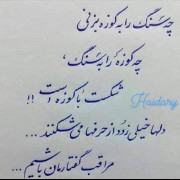 چه سنگ را به کوزه بزنی
چه کوزه را به سنگ،
شکست با کوزه است !!
Haidary
دلها خیلی زود از حرفها می شکنند ...
مراقب گفتارمان باشیم ...